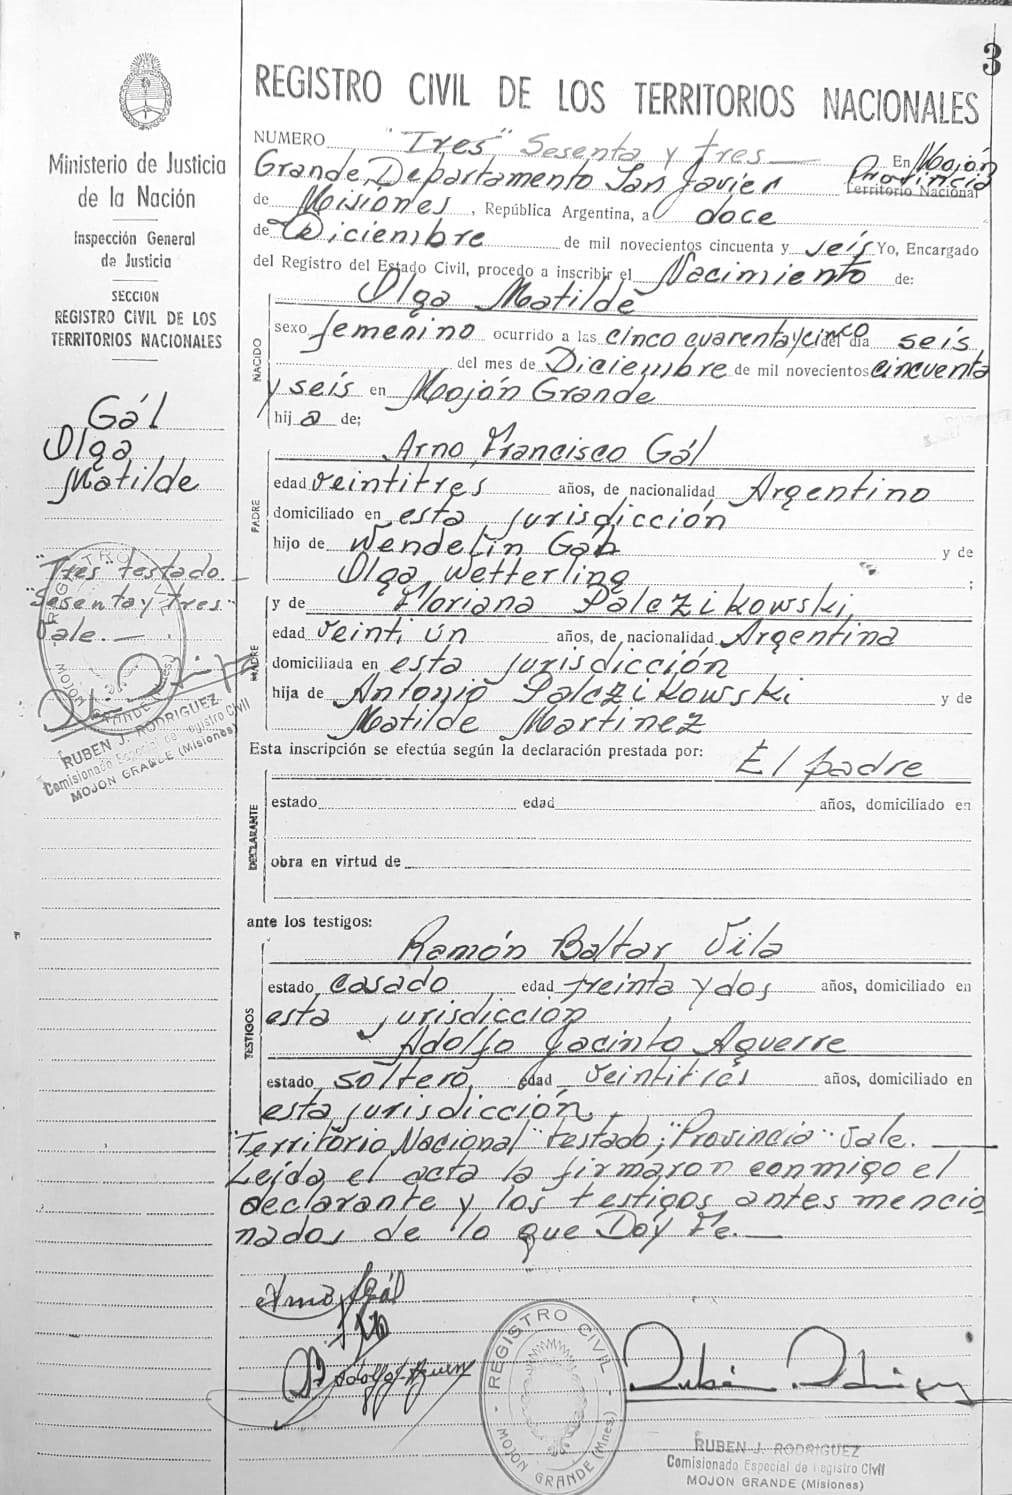 3
REGISTRO CIVIL DE LOS TERRITORIOS NACIONALES
Ministerio de Justicia
de la Nación
Inspección General
de Justicia
SECCION
REGISTRO CIVIL DE LOS
TERRITORIOS NACIONALES
Gál
Olga
Matilde
"Tres" testado.
"Sesenta y tres"
Vale.—
REGISTRO CIVIL
MOJON GRANDE (Mnes.)
RUBEN J. RODRIGUEZ
Comisionado Especial de Registro Civil
MOJON GRANDE (Misiones)
NUMERO "Tres" Sesenta y tres — En Mojón
Grande, Departamento San Javier Provincia Territorio Nacional
de Misiones, República Argentina, a doce
de Diciembre de mil novecientos cincuenta y seis Yo, Encargado
del Registro del Estado Civil, procedo a inscribir el Nacimiento de:
NACIDO
Olga Matilde
sexo femenino ocurrido a las cinco cuarenta y cinco del día seis
del mes de Diciembre de mil novecientos cincuenta
y seis en Mojón Grande
hija de;
PADRE
Arno Francisco Gál
edad veintitres años, de nacionalidad Argentino
domiciliado en esta jurisdicción
hijo de Wendelin Gal y de
Olga Wetterling ;
MADRE
y de Floriana Palczikowski,
edad veinti ún años, de nacionalidad Argentina
domiciliada en esta jurisdicción
hija de Antonio Palczikowski y de
Matilde Martinez
Esta inscripción se efectúa según la declaración prestada por: El padre
DECLARANTE
estado edad años, domiciliado en
obra en virtud de
ante los testigos:
TESTIGOS
Ramón Baltar Vila
estado casado edad treinta y dos años, domiciliado en
esta jurisdicción
Adolfo Jacinto Aguerre
estado soltero, edad veintitrés años, domiciliado en
esta jurisdicción,
"Territorio Nacional" testado; "Provincia" vale. —
Leída el acta la firmaron conmigo el
declarante y los testigos antes mencio
nados de lo que Doy Fe. —
Arno F Gál
Adolfo J Aguerre
Rubén Rodriguez
REGISTRO CIVIL
MOJON GRANDE (Mnes.)
RUBEN J. RODRIGUEZ
Comisionado Especial de Registro Civil
MOJON GRANDE (Misiones)